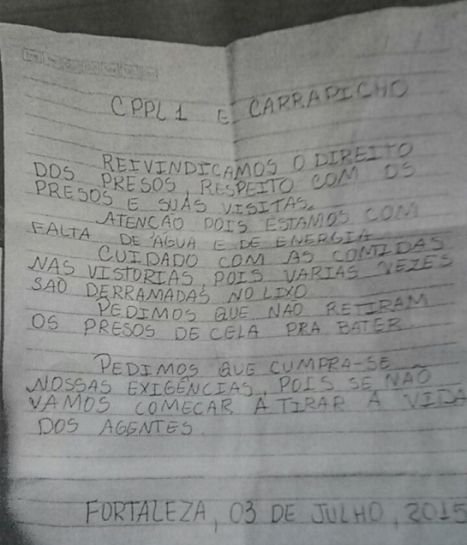 CPPL1 E CARRAPICHO
REIVINDICAMOS O DIREITO
DOS PRESOS, RESPEITO COM OS
PRESOS E SUAS VISITAS.
ATENÇAO POIS ESTAMOS COM
FALTA DE ÁGUA E DE ENERGIA
CUIDADO COM AS COMIDAS
NAS VISTORIAS, POIS VARIAS VEZES
SAO DERRAMADAS NO LIXO
PEDIMOS QUE NAO RETIRAM
OS PRESOS DE CELA PRA BATER
PEDIMOS QUE CUMPRA-SE
NOSSAS EXIGÊNCIAS, POIS SE NÃO
VAMOS COMEÇAR A TIRAR A VIDA
DOS AGENTES
FORTALEZA, 03 DE JULHO, 2015